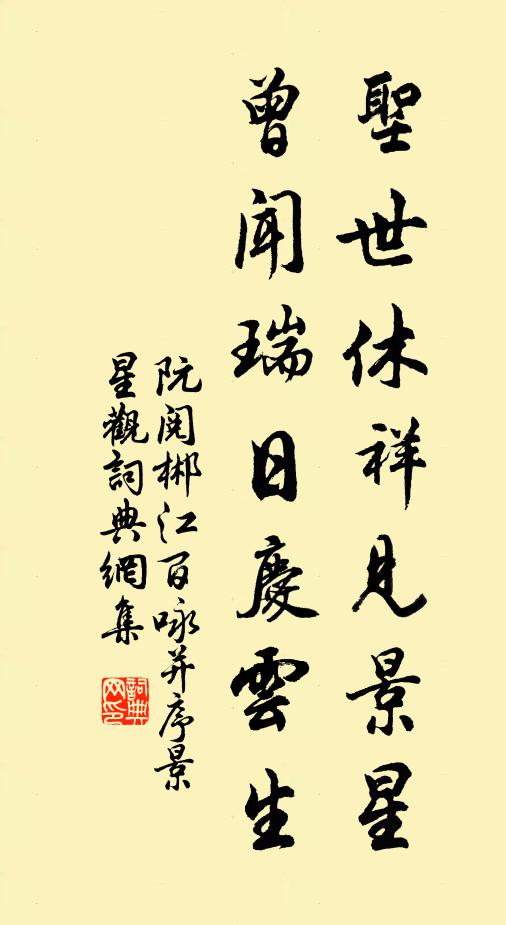 聖世休祥見景星
曾聞瑞日慶雲生
阮閱郴江百咏并序景
星觀詞典網集
詞典
网印